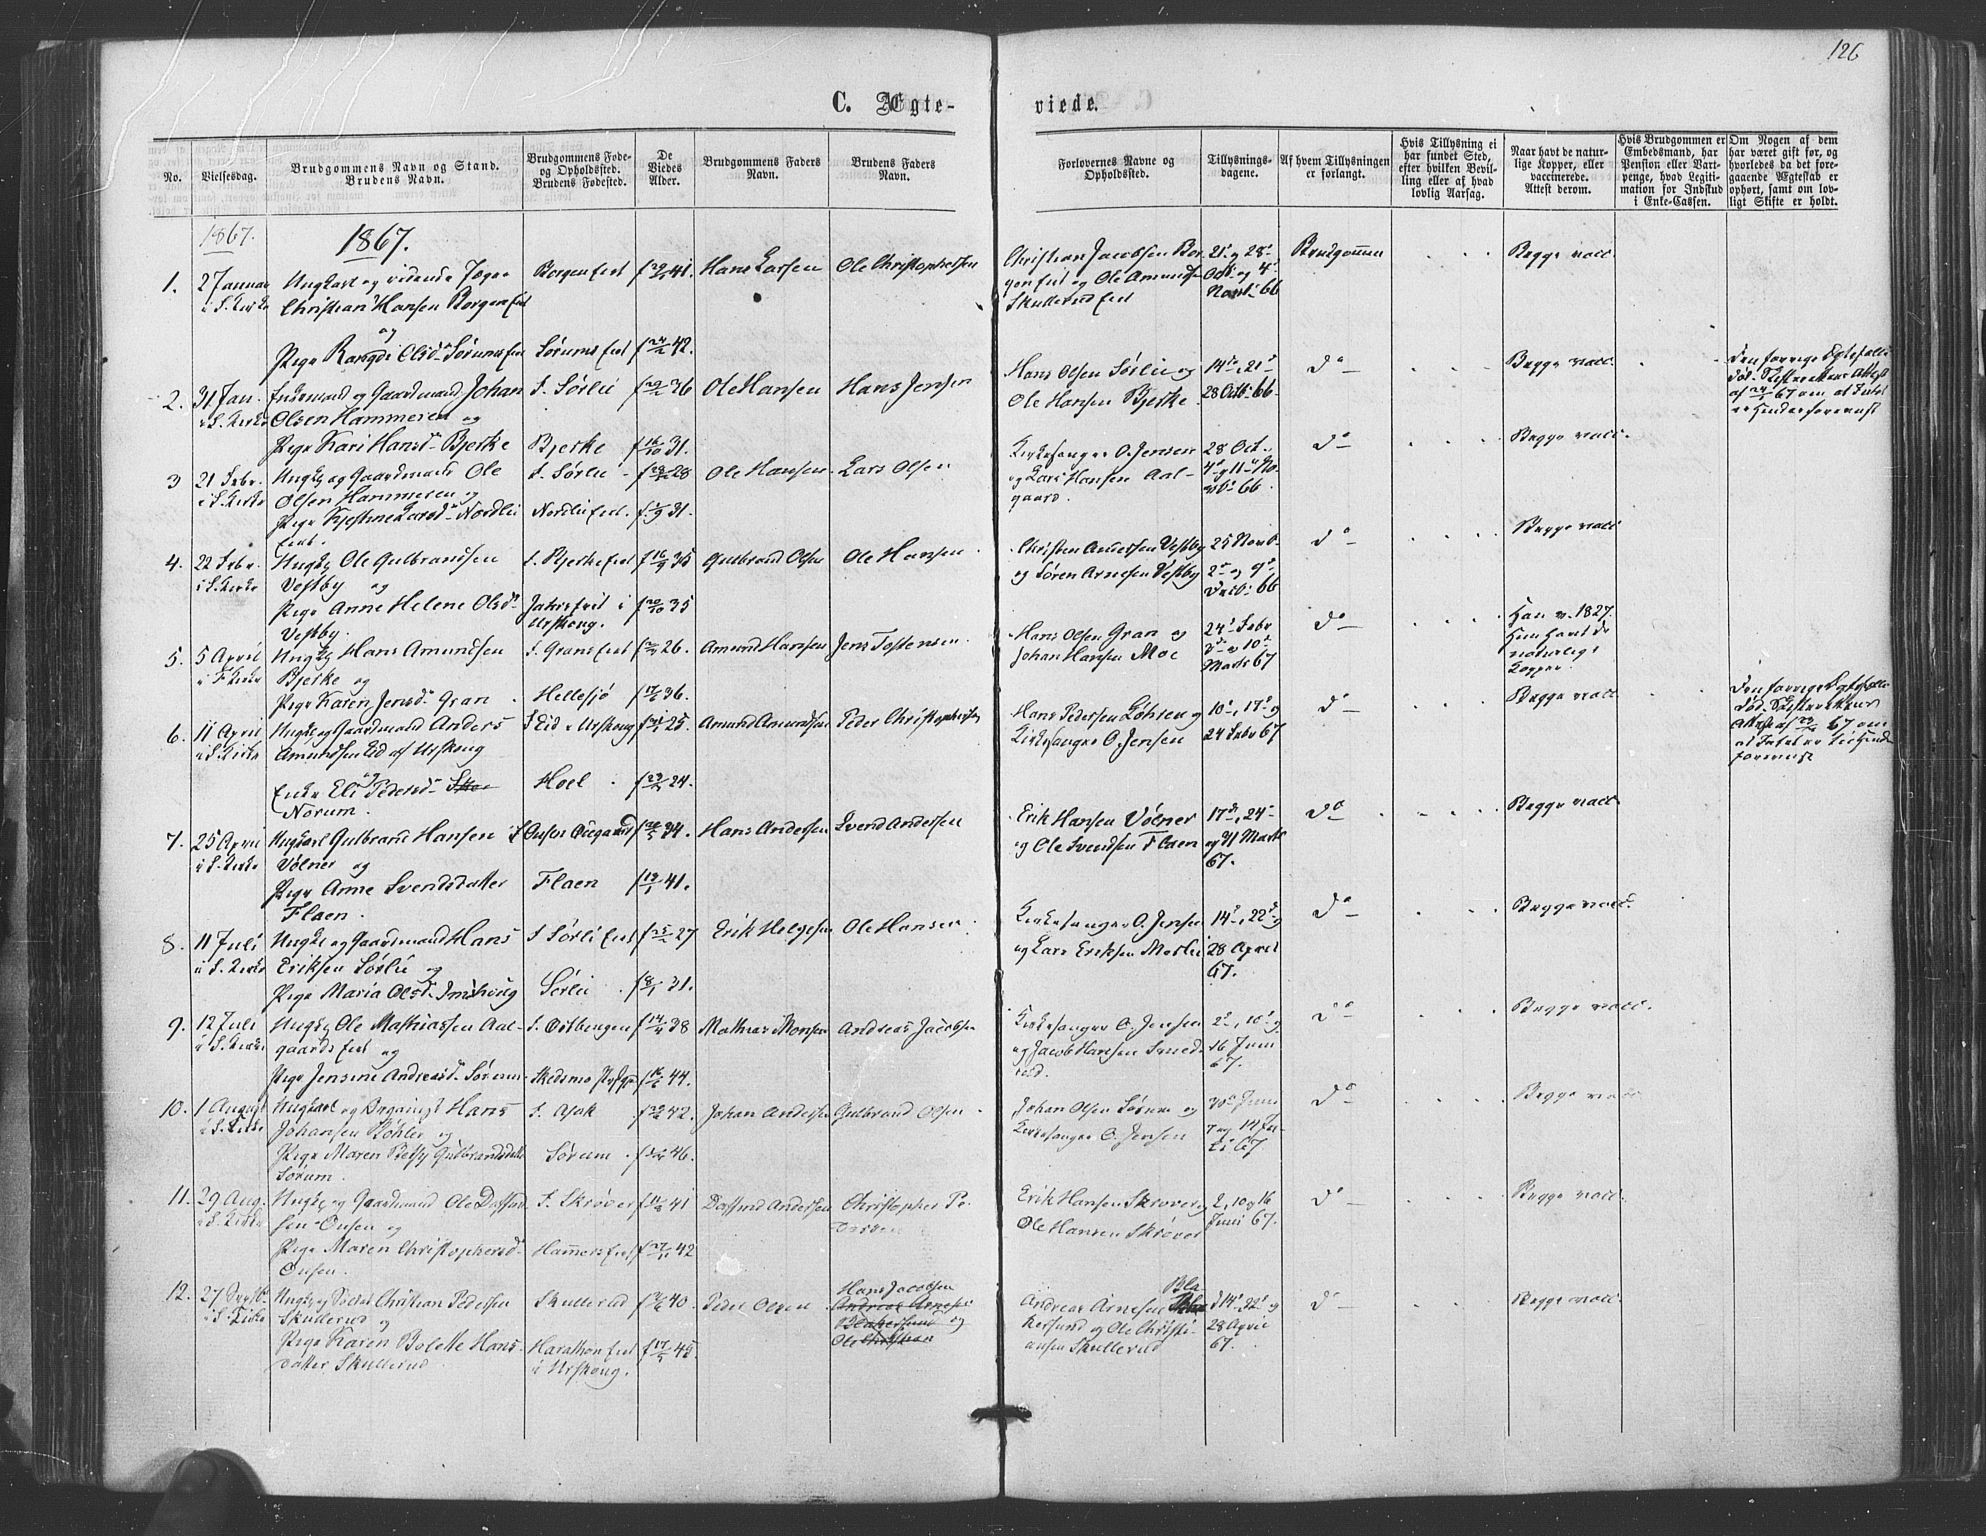 126
C. Ægte-
viede.
No.
Vielsesdag.
Brudgommens Navn og Stand.
Brudens Navn.
Brudgommens Føde-
og Opholdssted.
Brudens Fødested.
De
Viedes
Alder.
Brudgommens Faders
Navn.
Brudens Faders
Navn.
Forlovernes Navne og
Opholdssted.
Tillysnings-
dagene.
Af hvem Tillysningen
er forlangt.
Hvis Tillysning ei
har fundet Sted,
efter hvilken Bevil-
ling eller af hvad
lovlig Aarsag.
Naar havt de natur-
lige Kopper, eller
vaccinerede.
Attest derom.
Hvis Brudgommen er
Embedsmand, har
Pension eller Vart-
penge, hvad Legiti-
mation for Indskud
i Enke-Cassen.
Om Nogen af dem
har været gift før, og
hvorledes da det fore-
gaaende Ægteskab er
ophørt, samt om lov-
ligt Skifte er holdt.
1867.
1867.
1. 27 Januar Ungkarl og Borgen Eiet 41. Hans Larsen Ole Christophersen
i S. Kirke Christian Hansen Borgen Eiet
og
Pige Olsd. Sørums Eiet Sørums Eiet 42.
Christian Jacobsen Bor- 21 og 28 Brudgommen Begge vacc.
gen Eiet og Ole Amunds Oct. og 4
Skullerud Eiet Novb. 66
2. 31 Jan. Enkemand og Gaardmand Johan S. Sørlie 36 Ole Hansen Hans Jensen
i S. Kirke Olsen Hammeren og
Pige Kari Hansd. Bjerke Bjerke 31.
Hans Olsen Sørlie og 14, 21 do Begge vacc.
Ole Hansen Bjerke 28 Octb. 66
Den forrige Ægtefælle
død. Skifterettens Attest
af 67 om at Intet
er til Hinder forevist
3 21 Febr. Ungk. og Gaardmand Ole S. Sørlie 28 Ole Hansen Lars Olsen
i S. Kirke Olsen Hammeren og
Pige Larsd. Nordlie Nordlie Eiet 31.
Eiet.
Kirkesanger O. Jensen 28 Oct. do Begge vacc.
og Lars Hansen Aal- 4 og 11 No
gaard. vb. 66.
4. 22 Febr. Ungk. Ole Gulbrandsen S. Bjerke Eiet 35 Gulbrand Olsen Ole Hansen
i S. Kirke Vestby og
Pige Anne Helene Olsd. Eiet i 35
Vestby. Urskoug.
Christen Andersen Vestby 25 Novb. do Begge vacc.
og Søren Arnesen Vestby 2 og 9
Decb. 66
5. 5 April Ungk. Hans Amundsen S. Grans Eiet 26. Amund Hansen Jens Tostensen
i Kirke Bjerke og
Pige Karen Jensd. Gran Hellesjø 36.
Hans Olsen Gran og 24 Febr do Han v. 1827.
Johan Hansen Moe 3 og 10 Hun havt de
Marts 67 naturlige
Kopper.
6. 11 April Ungk. og Gaardmand Anders S. Eid i Urskoug 25. Amund Amundsen Peder Christophersen
i S. Kirke Amundsen Eid af Urskoug
og
Enke Eli Pedersd. Hoel 24.
Norum.
Hans Pedersen og 10, 17 og do Begge vacc.
Kirkesanger O. Jensen 24 Febr 67
Den forrige Ægtefælle
død. Skifterettens
Attest af 67 om
at Intet er til Hinder
forevist
7. 25 April Ungkarl Gulbrand Hansen 34. Hans Andersen Svend Andersen
i S. Kirke Vølner og
Pige Anne Svendsdatter Flaen 41.
Flaen.
Erik Hansen Vølner 17, 24 do Begge vacc.
og Ole Svendsen Flaen og 31 Marts
67.
8. 11 Juli Ungk. og Gaardmand Hans S. Sørli Eiet 27 Erik Helgesen Ole Hansen
i S. Kirke Eriksen Sørlie og
Pige Maria Olsd. Sørlie 31.
Kirkesanger O. Jensen 14, 22 og do Begge vacc.
og Lars Eriksen 28 April
67.
9. 12 Juli Ungk. Ole Mathiassen Aal- S. Østbengen 38 Mathias Monsen Andreas Jacobsen
i S. Kirke gaards Eiet og
Pige Jensine Andreasd. Sørum Skedsmo 44.
Kirkesanger O. Jensen 2, 10 og do Begge vacc.
og Jacob Hansen Smed- 16 Juni
rud. 67.
10. 1 August Ungkarl og Hans S. Ajak 42. Johan Andersen Gulbrand Olsen
i S. Kirke Johansen Bøhler og
Pige Maren Gulbrandsdatter Sørum 46.
Sørum.
Johan Olsen Sørum og 30 Juni do Begge vacc.
Kirkesanger O. Jensen 7 og 14 Ju-
li 67
11. 29 Aug. Ungk. og Gaardmand Ole S. Skrøver 41 Andersen Christopher Pe-
i S. Kirke sen Onsen og dersen
Pige Maren Christophersd. Hammers Eiet 42
Onsen.
Erik Hansen Skrøver og 2, 10 og 16 do Begge vacc.
Ole Hansen Skrøver Juni 67.
12. 27 Septb. Ungk. og Christian Pedersen Skullerud 40. Peder Olsen Hans Jacobsen
i S. Kirke Skullerud og
Pige Karen Bolette Hans- Eiet 45.
datter Skullerud i Urskoug.
Andreas Arnesen Bla 14, 22 og do Begge vacc.
kersund og Ole Christi- 28 April
ansen Skullerud 67.